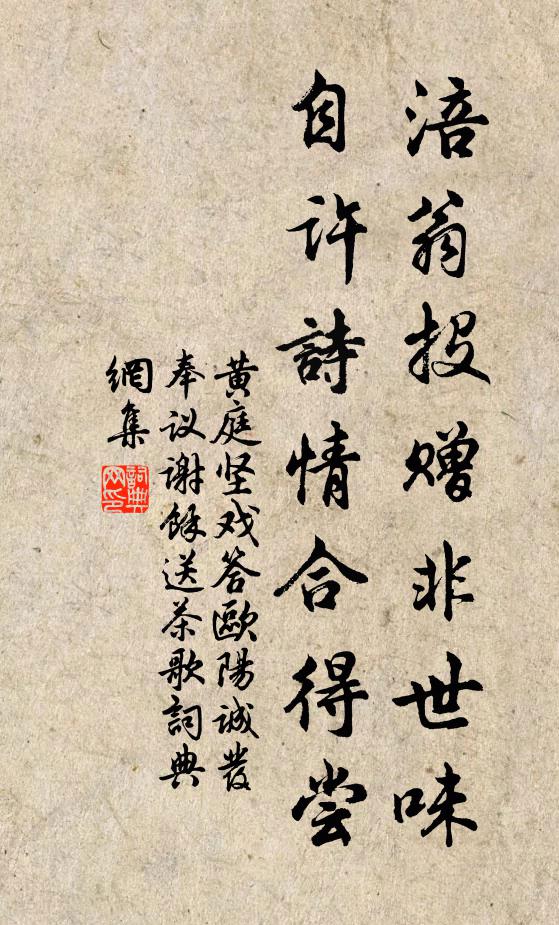 涪翁投赠非世味
自许詩情合得尝
黄庭坚戏答歐陽诚發
奉议谢馀送茶歌詞典
網集
詞典網印